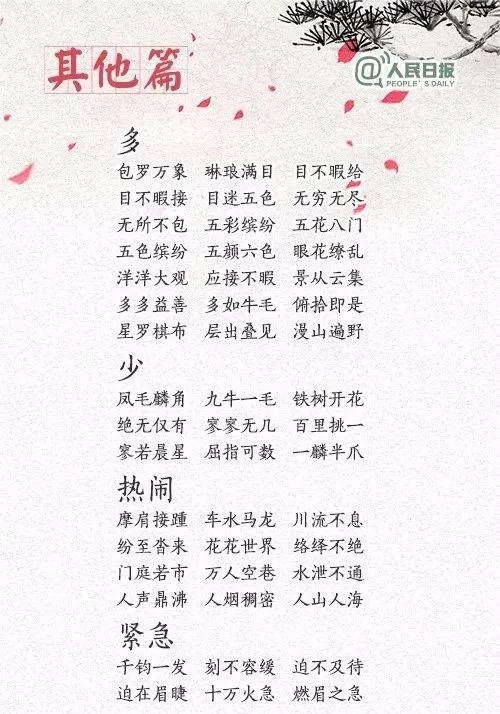 其他篇
@人民日报
PEOPLE'S DAILY
多
包罗万象 琳琅满目 目不暇给
目不暇接 目迷五色 无穷无尽
无所不包 五彩缤纷 五花八门
五色缤纷 五颜六色 眼花缭乱
洋洋大观 应接不暇 景从云集
多多益善 多如牛毛 俯拾即是
星罗棋布 层出叠见 漫山遍野
少
凤毛麟角 九牛一毛 铁树开花
绝无仅有 寥寥无几 百里挑一
寥若晨星 屈指可数 一麟半爪
热闹
摩肩接踵 车水马龙 川流不息
纷至沓来 花花世界 络绎不绝
门庭若市 万人空巷 水泄不通
人声鼎沸 人烟稠密 人山人海
紧急
千钧一发 刻不容缓 迫不及待
迫在眉睫 十万火急 燃眉之急